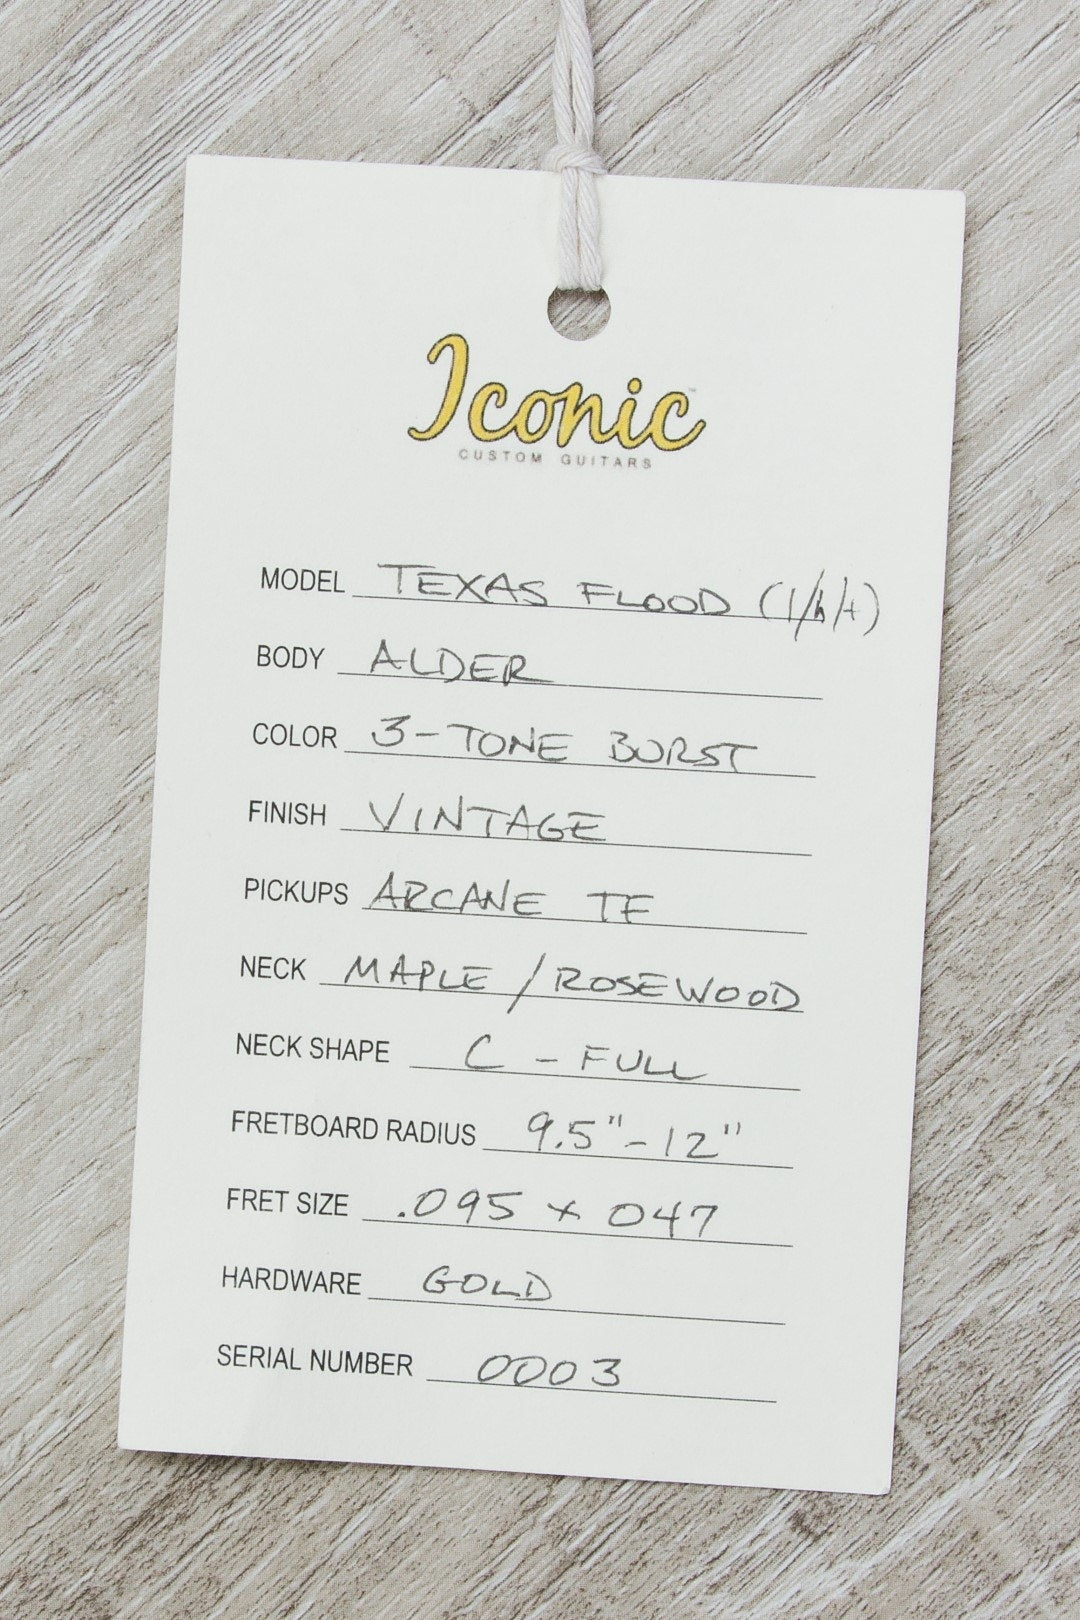 Iconic™
CUSTOM GUITARS
MODEL TEXAS FLOOD
BODY ALDER
COLOR 3-TONE BURST
FINISH VINTAGE
PICKUPS ARCANE TF
NECK MAPLE / ROSEWOOD
NECK SHAPE C - FULL
FRETBOARD RADIUS 9.5" - 12"
FRET SIZE .095 x 047
HARDWARE GOLD
SERIAL NUMBER 0003